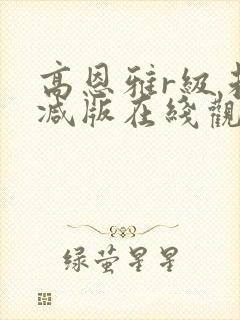 高恩雅r级未
减版在线觀
绿萤星星